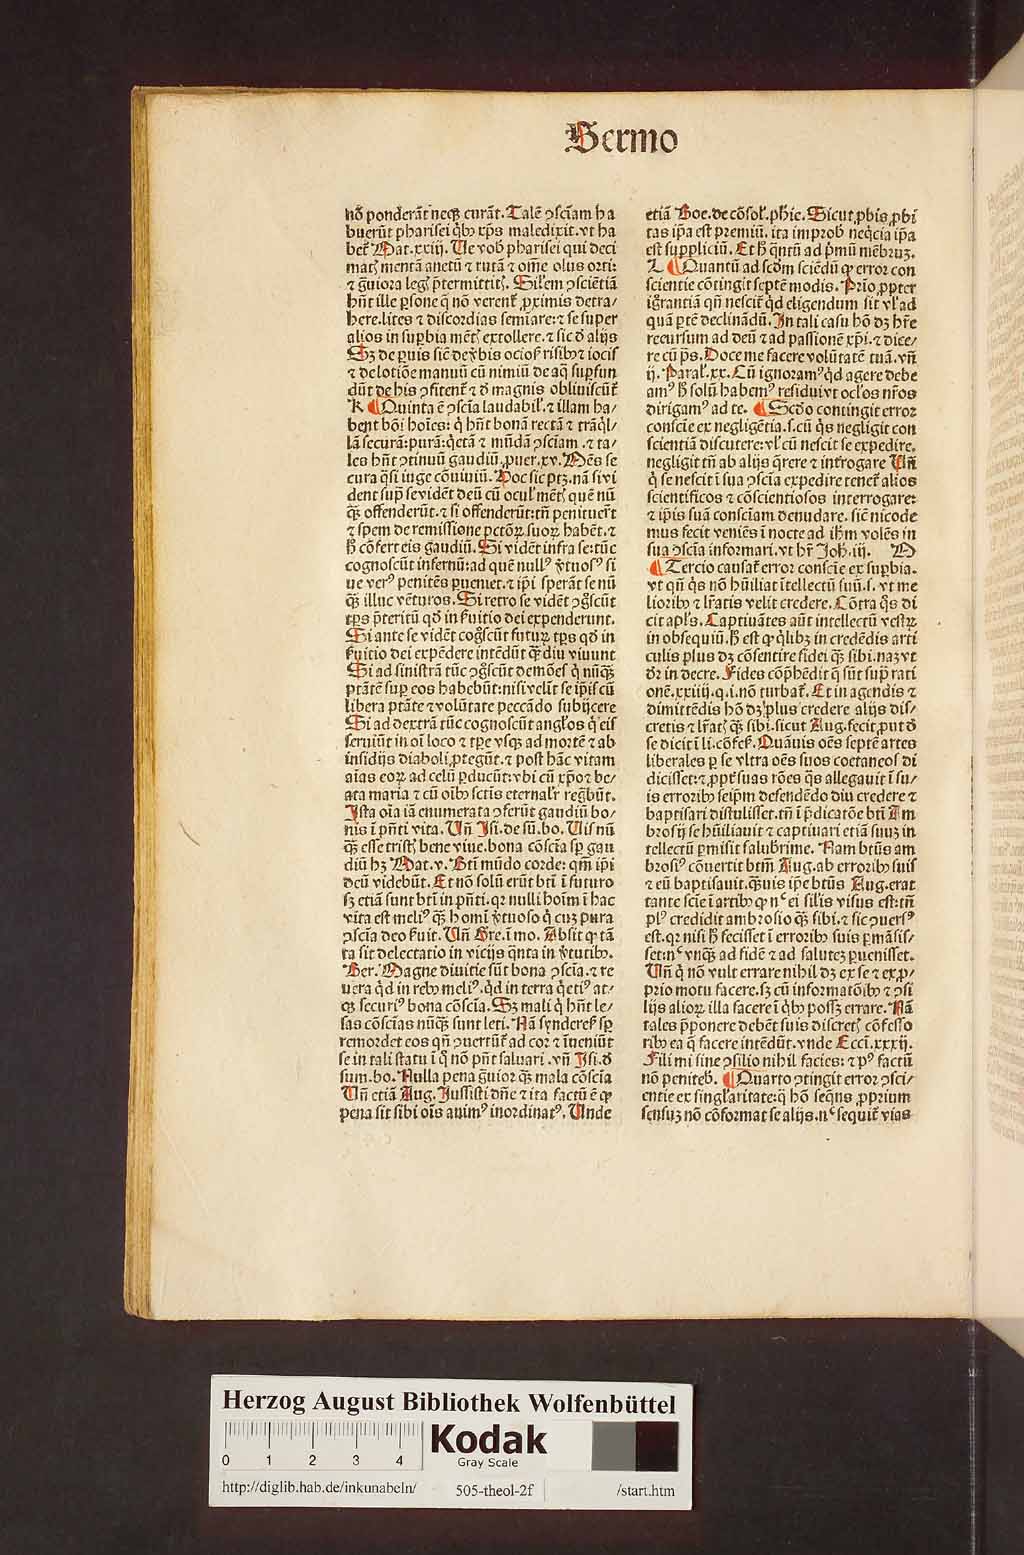 Sermo
nō ponderāt neq̄ꝫ curāt. Talē ꝯsciam ha
buerūt pharisei q̇bꝰ xp̄s maledixit. vt ha
bet᷑ Mat. xxiij. Ue vob̄ pharisei qui deci
matꝭ mentā anetū ⁊ rutā ⁊ om̄e olus orti:
⁊ g̊uiora legꝭ p̄termittitꝭ. Sil̄em ꝯsciētiā
hn̄t ille ꝑsone q̄ nō verent᷑ ꝓximis detra/
here. lites ⁊ discordias semīare: ⁊ se super
alios in suꝑbia mētꝭ extollere. ⁊ sic d̄ alijs
Sꝫ de ꝑuis sic̄ de v̄bis ociosꝭ risibꝰ ⁊ iocis
⁊ de lotiōe manuū cū nimiū de aq̄ suꝑfun
dūt de his ꝯfitent᷑ ⁊ d̄ magnis obliuiscūt᷑
K ¶ Quinta ē ꝯscīa laudabil̓. ⁊ illam ha/
bent bōi hoīes: q̇ hn̄t bonā rectā ⁊ trāq̇l/
lā securā: purā: q̇etā ⁊ mūdā ꝯsciam. ⁊ ta/
les hn̄t ꝯtinuū gaudiū. ꝓuer. xv. Mēs se
cura q̄si iuge cōuiuiū. Hoc sic ptꝫ. nā si vi
dent sup̄ se vidēt deū cū ocul̓ mētꝭ quē nū
q̄ꝫ offenderūt. ⁊ si offenderūt: tn̄ penituer̄t
⁊ spem de remissione pctōꝝ suoꝝ habēt. ⁊
h̄ cōfert eis gaudiū. Si vidēt infra se: tūc
cognoscūt infernū: ad quē nullꝰ v̄tuosꝰ si
ue verꝰ penitēs ꝑueniet. ⁊ ip̄i sperāt se nū
q̄ꝫ illuc vēturos. Si retro se vidēt ꝯg̊scūt
tp̄s p̄teritū qd̄ in ẜuitio dei expenderunt.
Si ante se vidēt cog̊scūt futuꝝ tp̄s qd̄ in
ẜuitio dei expēdere intēdūt q̄ꝫ diu viuunt
Si ad sinistrā tūc ꝯg̊scūt demōes q̇ nūq̄ꝫ
ptātē suꝑ eos habebūt: nisi velīt se ip̄is cū
libera ptāte ⁊ volūtate peccādo subijcere
Si ad dextrā tūc cognoscūt angl̓os q̇ eis
seruiūt in oī loco ⁊ tp̄e vsq̄ꝫ ad mortē ⁊ ab
insidijs diaboli ꝓtegūt. ⁊ post hāc vitam
aīas eoꝝ ad celū ꝑducūt: vbi cū xp̄o ⁊ be/
ata maria ⁊ cū oībꝰ sctīs eternal̓r reg̊būt.
Ista oīa iā enumerata ꝯferūt gaudiū bo/
nis ī pn̄ti vita. Un̄ Isi. de sū. bo. Uis nū
q̄ꝫ esse tristꝭ bene viue. bona cōscīa sp̄ gau
diū hꝫ Mat. v. Bt̄i mūdo corde: qm̄ ip̄i
deū videbūt. Et nō solū erūt bt̄i ī futuro
sꝫ etiā sunt bt̄i in pn̄ti. qꝛ nulli hoīm ī hac
vita est meliꝰ q̄ꝫ homī v̄tuoso q̇ cuꝫ pura
ꝯscīa deo ẜuit. Un̄ Gre. ī mo. Absit ꝙ tā
ta sit delectatio in vicijs q̄nta in v̄tutibꝰ.
Ber. Magne diuitie sūt bona ꝯscīa. ⁊ re
uera qd̄ in rebꝰ meliꝰ. qd̄ in terra q̇etiꝰ at/
q̄ꝫ securiꝰ bona cōscīa. Sꝫ mali q̇ hn̄t le/
sas cōscīas nūq̄ꝫ sunt leti. Nā synderesꝭ sp̄
remordet eos qn̄ ꝯuertūt᷑ ad cor ⁊ īueniūt
se in tali statu ī q̄ nō pn̄t saluari. vn̄ Isi. d̄
sum. bo. Nulla pena g̊uior q̄ꝫ mala cōscīa
Un̄ etiā Aug. Iussisti dn̄e ⁊ ita factū ē ꝙ
pena sit sibi oīs animꝰ inordinatꝰ. Unde
etiā Boe. de cōsol̓. ph̄ie. Sicut ꝓbis ꝓbi
tas ip̄a est premiū. ita improb neq̇cia ip̄a
est suppliciū. Et h̄ q̄ntū ad p̄mū mēbruꝫ.
L ¶ Quantū ad scd̄m sciēdū ꝙ error con
scientie cōtingit septē modis. Prīo ꝓpter
ig̊rantiā qn̄ nescit᷑ qd̄ eligendum sit vl̓ ad
quā ꝑtē declinādū. In tali casu hō dꝫ hr̄e
recursum ad deū ⁊ ad passionē xp̄i. ⁊ dice/
re cū p̄s. Doce me facere volūtatē tuā. vn̄
ij. Paral̓. xx. Cū ignoramꝰ qd̄ agere debe
amꝰ h̄ solū habemꝰ residui vt ocl̓os nr̄os
dirigamꝰ ad te. ¶ Scd̄o contingit error
conscīe ex negligētia. s. cū q̇s negligit con
scientiā discutere: vl̓ cū nescit se expedire.
negligit tn̄ ab alijs q̄rere ⁊ int̄rogare Un̄
q̇ se nescit ī sua ꝯscīa expedire tenet᷑ alios
scientificos ⁊ cōscientiosos interrogare:
⁊ ip̄is suā consciam denudare. sic̄ nicode
mus fecit veniēs ī nocte ad ih̄m volēs in
sua ꝯscīa informari. vt hr̄ Joh̄. iij. M
¶ Tercio causat᷑ error conscīe ex suꝑbia.
vt qn̄ q̇s nō hūiliat ītellectū suū. s. vt me
lioribꝰ ⁊ lr̄atis velit credere. Cōtra q̇s di
cit apl̓s. Captiuātes aūt intellectū vestꝝ
in obsequiū. h̄ est ꝙ q̇libꝫ in credēdis arti
culis plus dꝫ cōsentire fidei q̄ꝫ sibi. naꝫ vt
dr̄ in decre. Fides cōp̄hēdit q̄ sūt sup̄ rati
onē. xxiiij. q. i. nō turbat᷑. Et in agendis ⁊
dimittēdis hō dꝫ plus credere alijs dis/
cretis ⁊ lr̄atꝭ q̄ꝫ sibi. sicut Aug. fecit ꝓut d̄
se dicit ī li. cōfesꝭ. Quāuis oēs septē artes
liberales ꝑ se vltra oēs suos coetaneos di
dicisset: ⁊ ꝓpt̄ suas rōes q̇s allegauit ī su/
is erroribꝰ seip̄m defendēdo diu credere ⁊
baptisari distulisset. tn̄ ī p̄dicatōe bt̄i Am
brosij se hūiliauit ⁊ captiuari etiā suuꝫ in
tellectū ꝑmisit salubrime. Nam bt̄us am
brosiꝰ cōuertit btm̄ Aug. ab erroribꝰ suis
⁊ eū baptisauit. q̄ꝫuis ip̄e bt̄us Aug. erat
tante scīe ī artibꝰ ꝙ nᷓ ei silis visus est: tn̄
plꝰ credidit ambrosio q̄ꝫ sibi. ⁊ sic ꝯuersꝰ
est. qꝛ nisi h̄ fecisset ī erroribꝰ suis ꝑmāsis/
set: nᷓ vnq̄ꝫ ad fidē ⁊ ad saluteꝫ ꝑuenisset.
Un̄ q̇ nō vult errare nihil dꝫ ex se ⁊ ex ꝓ/
prio motu facere. sꝫ cū informatōibꝰ ⁊ ꝯsi
lijs alioꝝ illa facere ī q̇bꝰ possꝫ errare. Nā
tales p̄ponere debēt suis discretꝭ cōfesso
ribꝰ ea q̄ facere intēdūt. vnde Eccī. xxxij.
Fili mi sine ꝯsilio nihil facies: ⁊ pꝰ factū
nō penitebꝭ. ¶ Quarto ꝯtingit error ꝯsci/
entie ex singl̓aritate: q̄ hō seq̄ns ꝓprium
sensuꝫ nō cōformat se alijs. nᷓ sequit᷑ vias
Herzog August Bibliothek Wolfenbüttel
0 1 2 3 4
Kodak
Gray Scale
http://diglib.hab.de/inkunabeln/ 505-theol-2f /start.htm